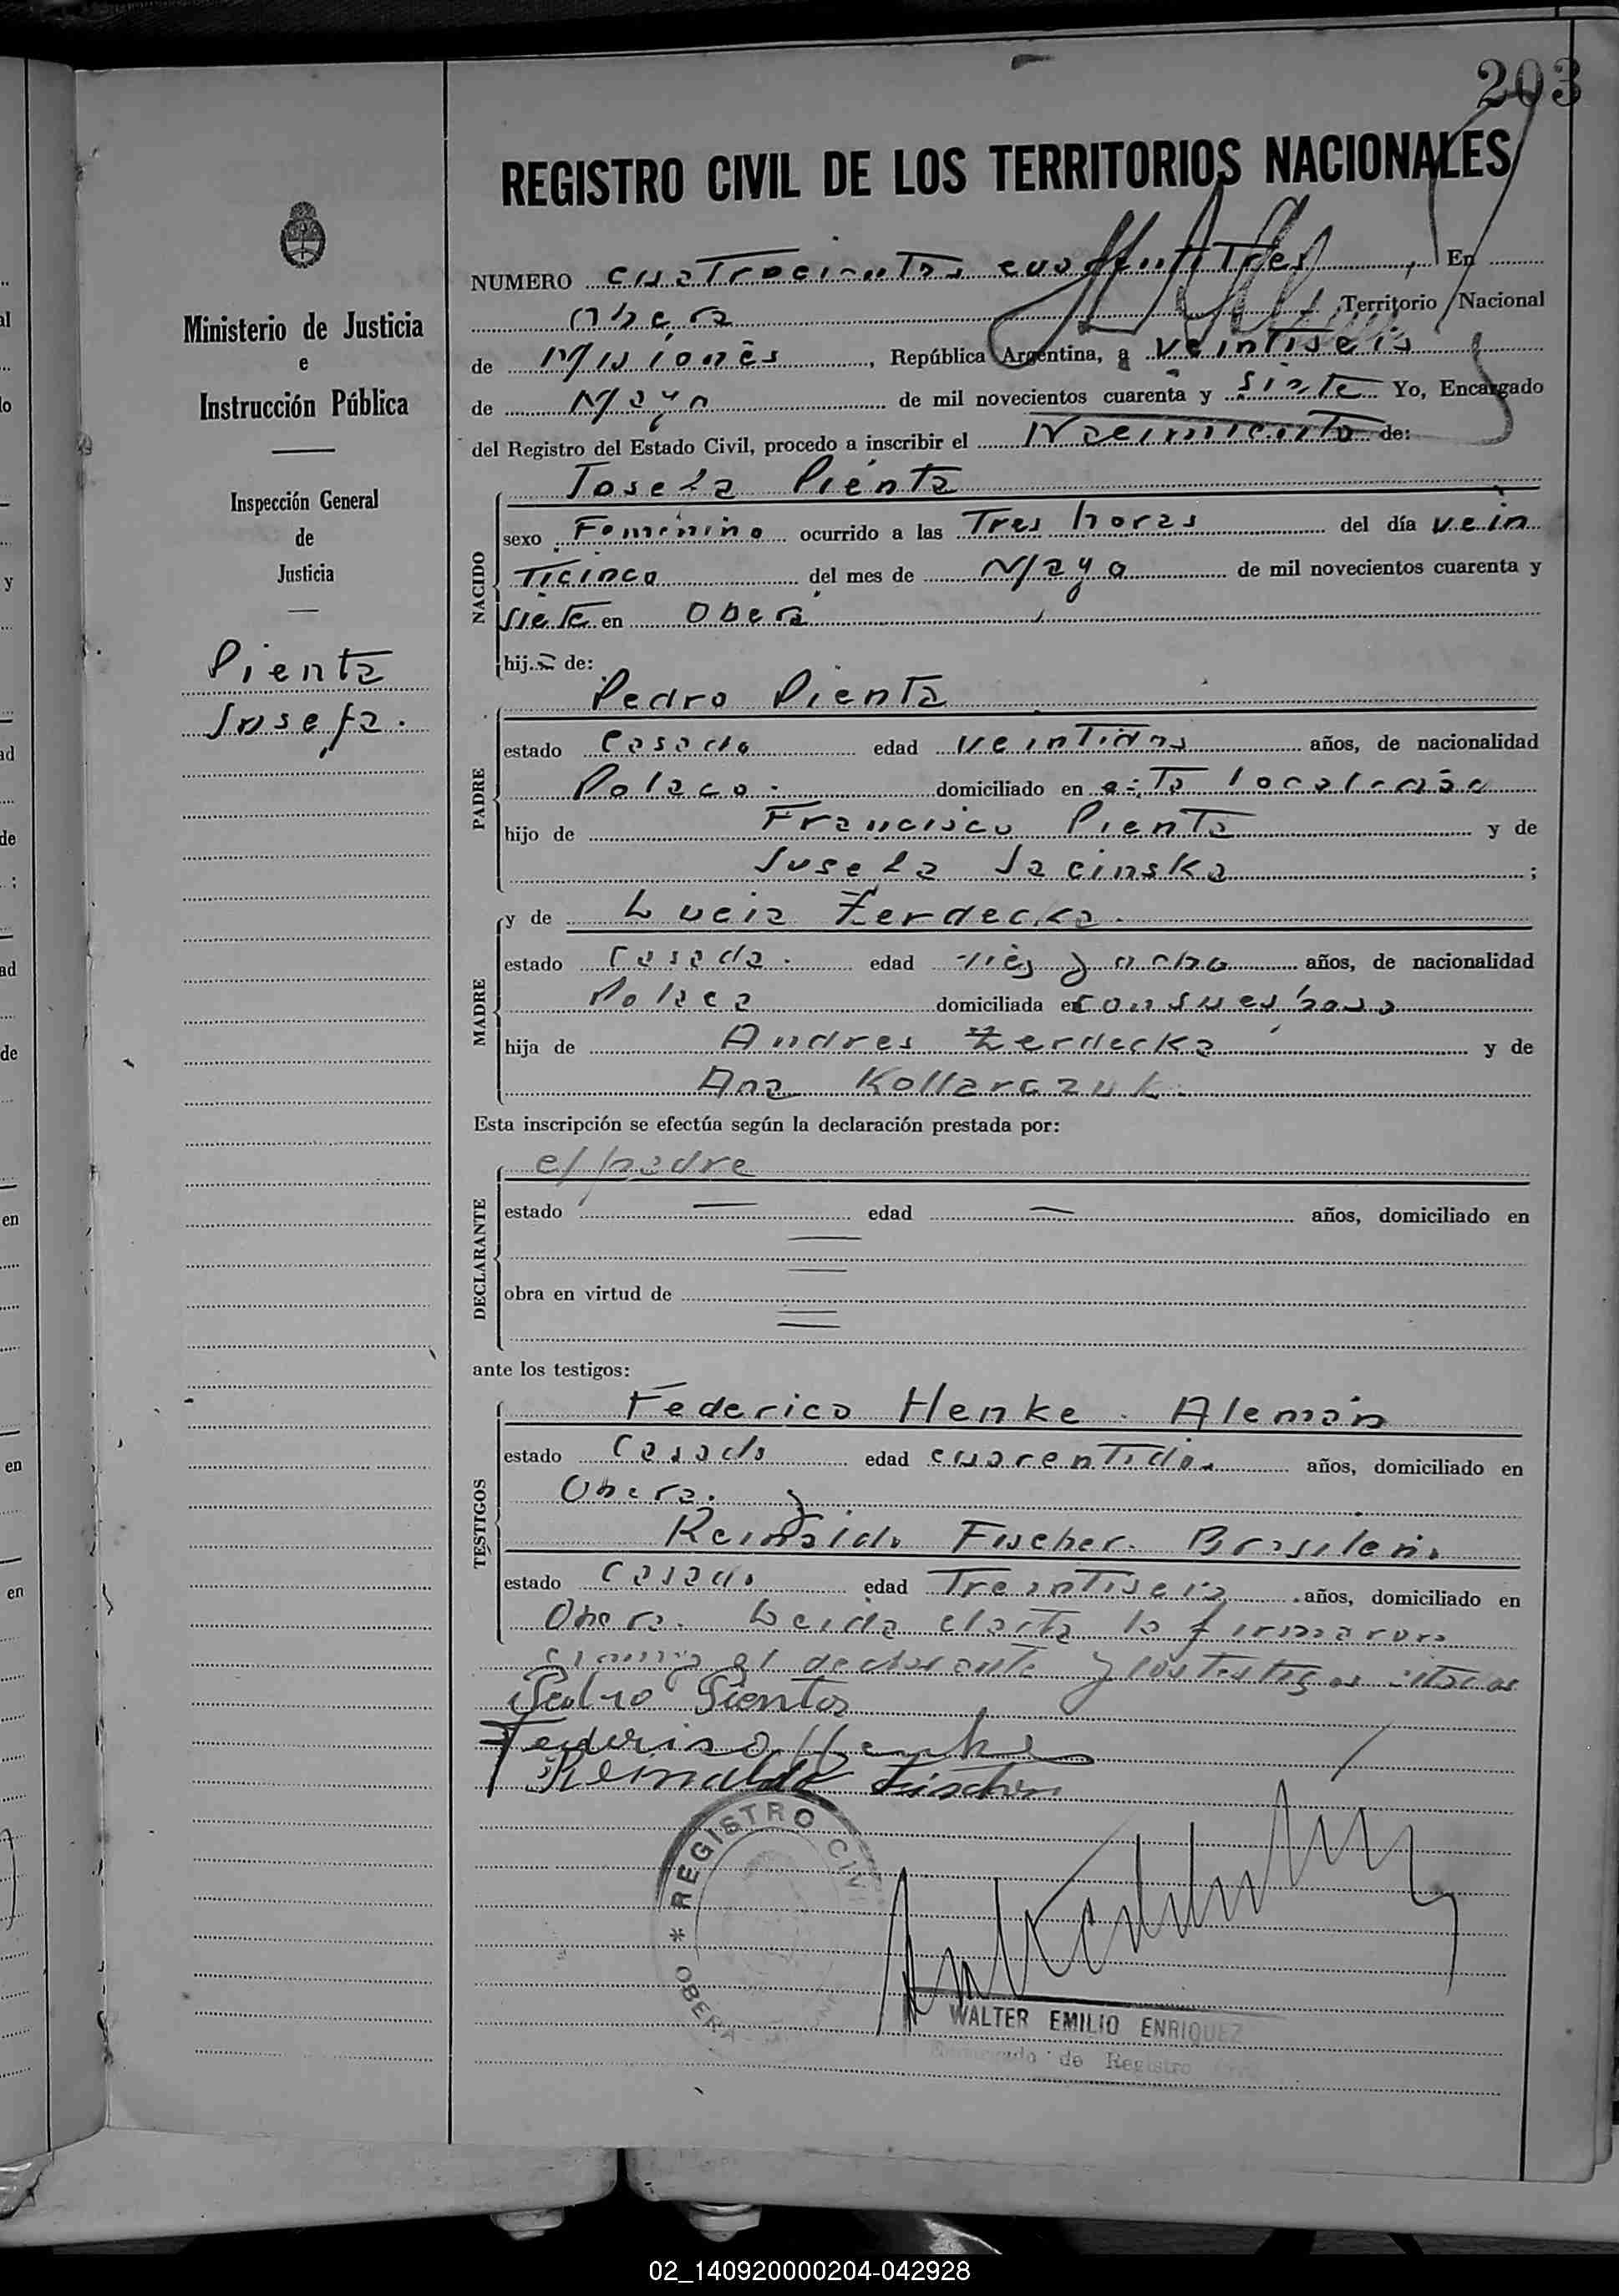 203
REGISTRO CIVIL DE LOS TERRITORIOS NACIONALES
NUMERO cuatrocientos , En
Obera Territorio Nacional
de Misiones , República Argentina, a veintiseis
de Mayo de mil novecientos cuarenta y siete Yo, Encargado
del Registro del Estado Civil, procedo a inscribir el Nacimiento de:
Ministerio de Justicia
e
Instrucción Pública
Inspección General
de
Justicia
Pienta
Josefa.
NACIDO
Josefa Pienta
sexo Femenino ocurrido a las Tres horas del día vein
ticinco del mes de Mayo de mil novecientos cuarenta y
siete en Obera
hija de:
PADRE
Pedro Pienta
estado Casado edad veintidos años, de nacionalidad
Polaco. domiciliado en esta localidad
hijo de Francisco Pienta y de
Josefa Jacinska ;
MADRE
y de Lucia Zerdecka.
estado Casada. edad dies y ocho años, de nacionalidad
Polaca domiciliada en con su esposo
hija de Andres Zerdecka y de
Ana Kollarczuk.
Esta inscripción se efectúa según la declaración prestada por:
DECLARANTE
el padre
estado edad años, domiciliado en
obra en virtud de
ante los testigos:
TESTIGOS
Federico Henke. Alemán
estado Casado edad cuarentidos años, domiciliado en
Obera. y
Reinaldo Fischer. Brasileño
estado Casado edad Treintiseis años, domiciliado en
Obera. Leida el acta la firmaron
el declarante y los testigos citados
Pedro Pienta
Federico Henke
Reinaldo Fischer
* REGISTRO CIVIL
OBERA
WALTER EMILIO ENRIQUEZ
Encargado de Registro
02_140920000204-042928